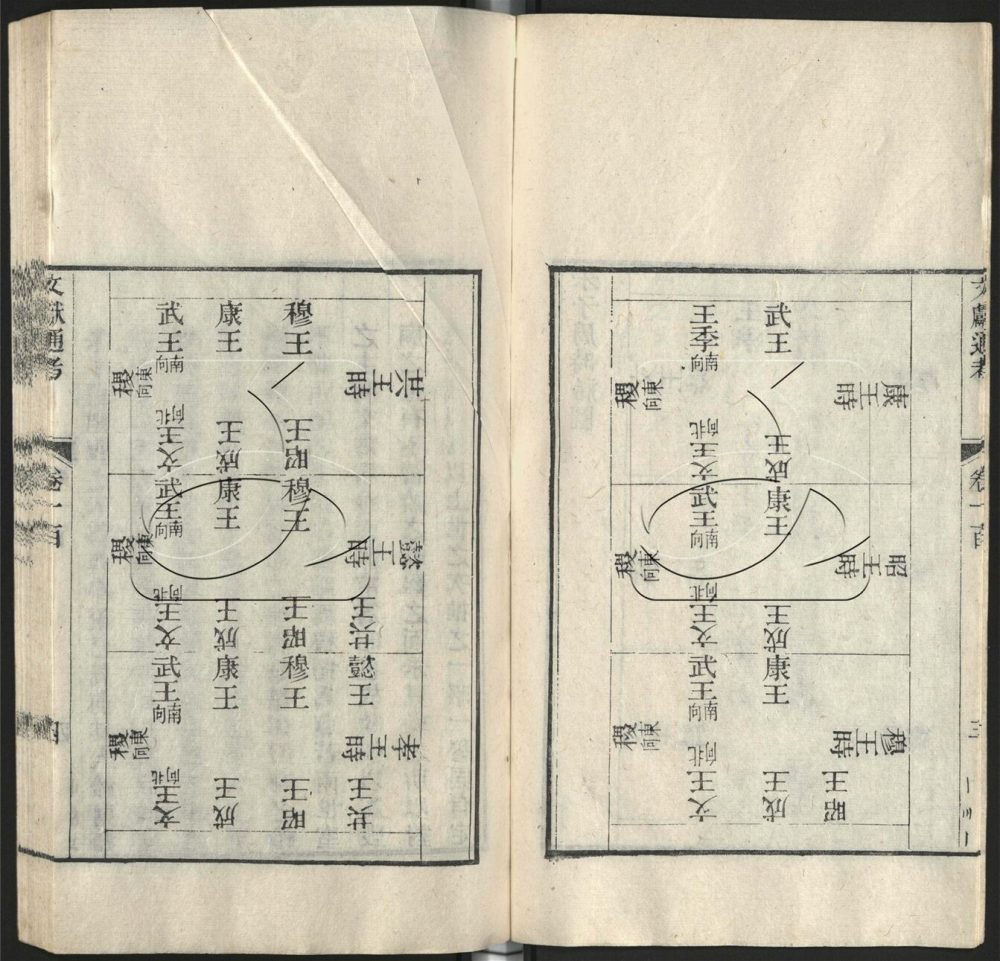 文獻通考
卷一百
三
康王時
武王
成王
王季南向
文王北向
稷東向
昭王時
康王
成王
武王南向
文王北向
稷東向
穆王時
昭王
康王
成王
武王南向
文王北向
稷東向
共王時
穆王
昭王
康王
成王
武王南向
文王北向
稷東向
懿王時
共王
穆王
昭王
康王
成王
武王南向
文王北向
稷東向
孝王時
懿王
共王
穆王
昭王
康王
成王
武王南向
文王北向
稷東向
文獻通考
卷一百
四